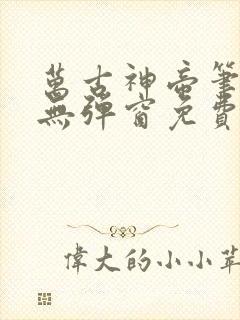 萬古神帝筆
無彈窗免費
偉大的小小苹